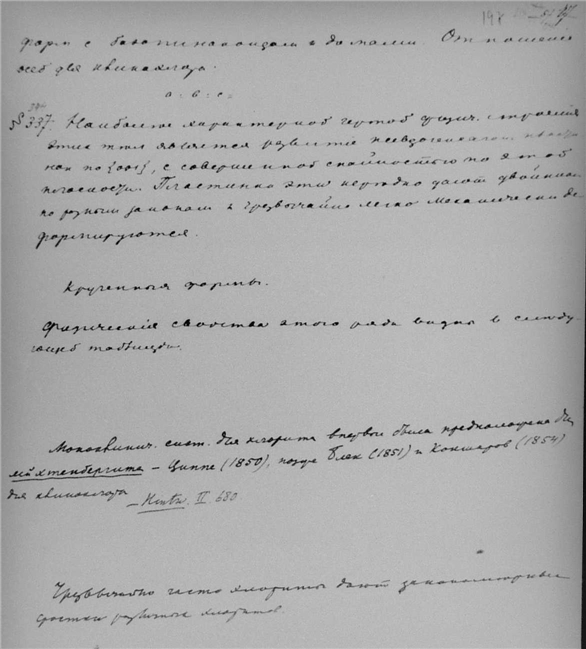 форм с базопинакоидом и домами. Отношение
осей для клинохлора.
a : b : c =
§ 337. Наиболее характерной чертой физич. строения
этих тел является развитие псевдогексагон.
по {001}, с совершенной спайностью по этой
плоскости. Пластинки эти нередко дают двойники
по разным законам и чрезвычайно легко механически де
формируются.
Крученныя формы.
Физическия свойства этого ряда видны в следу-
ющей таблице.
Моноклинич. сист. для хлорита впервые была предположена для
лейхтенбергита – Циппе (1850), позже Блек (1851) и Кокшаров (1854)
для клинохлора – Hintze. II. 680.
Чрезвычайно часто хлориты дают закономерные
сростки различных хлоритов.